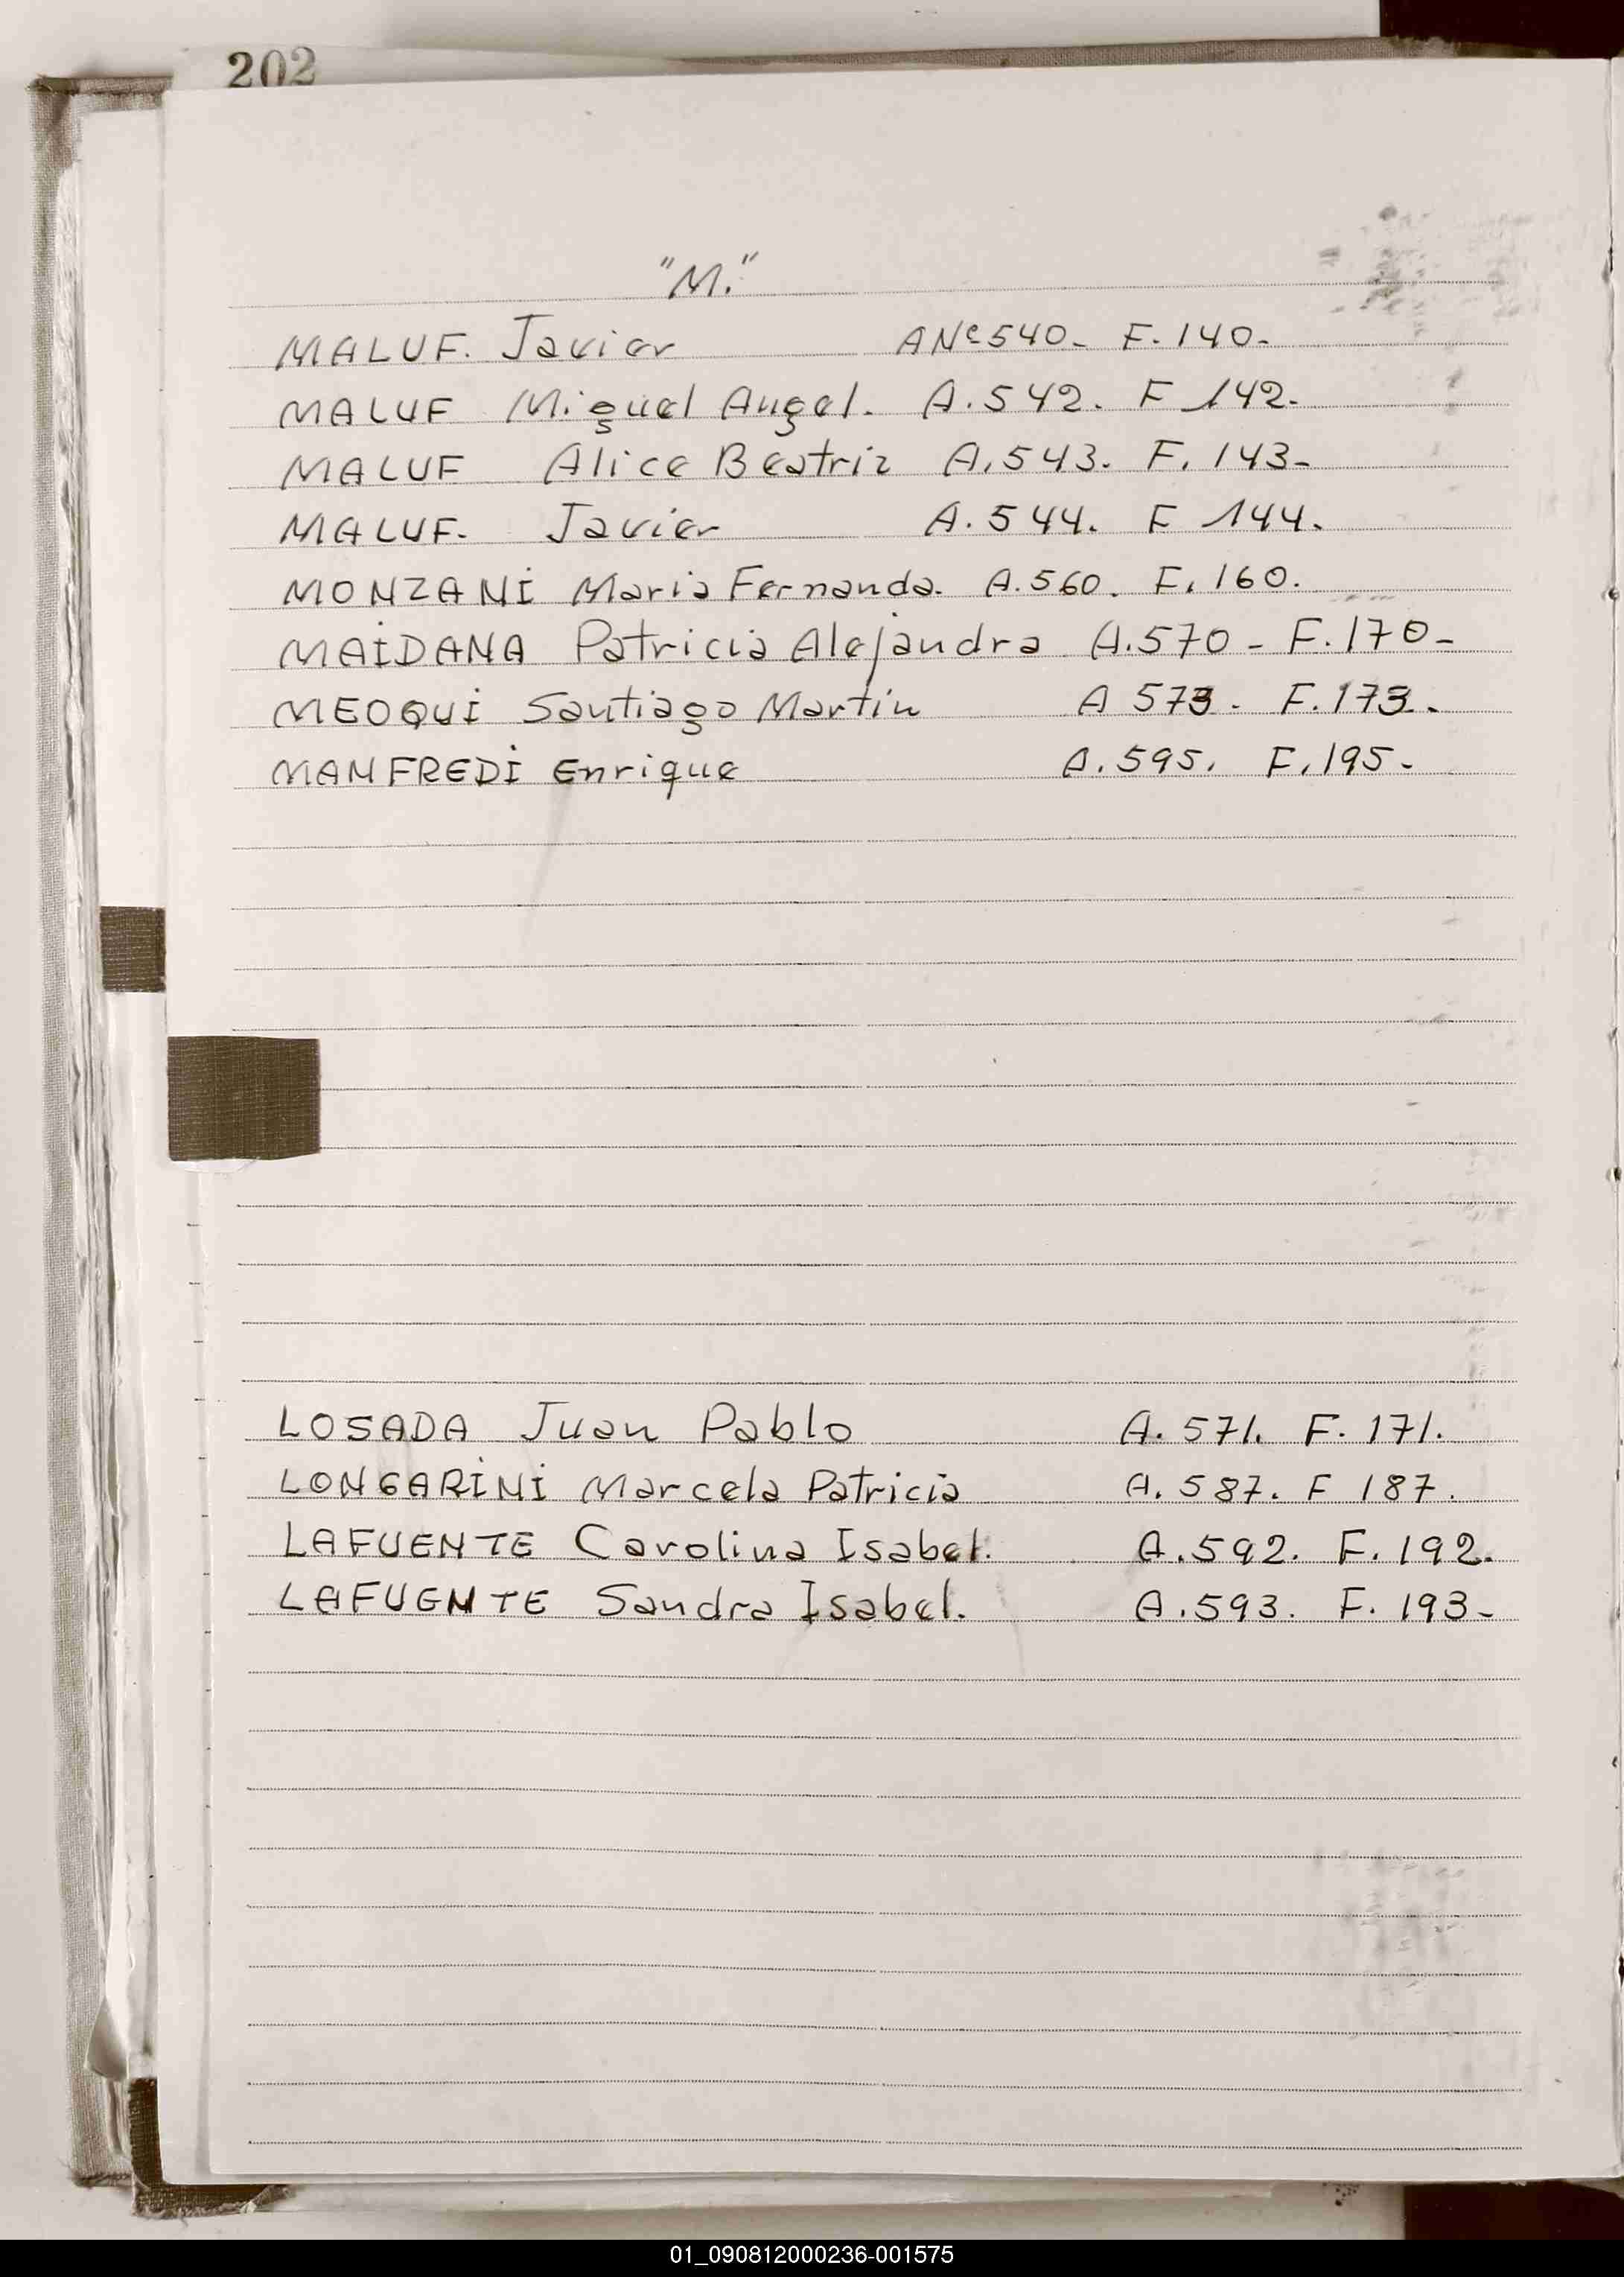 202
"M."
MALUF. Javier ANº540- F.140-
MALUF Miguel Angel. A.542. F 142-
MALUF Alice Beatriz A.543. F.143-
MALUF- Javier A.544. F 144.
MONZANI Maria Fernanda. A.560. F.160.
MAIDANA Patricia Alejandra A.570- F.170-
MEOQUI Santiago Martin A 573. F.173.
MANFREDI Enrique A.595. F.195.
LOSADA Juan Pablo A.571. F.171.
LONGARINI Marcela Patricia A.587. F 187.
LAFUENTE Carolina Isabel. A.592. F.192.
LAFUENTE Sandra Isabel. A.593. F.193-
01_090812000236-001575